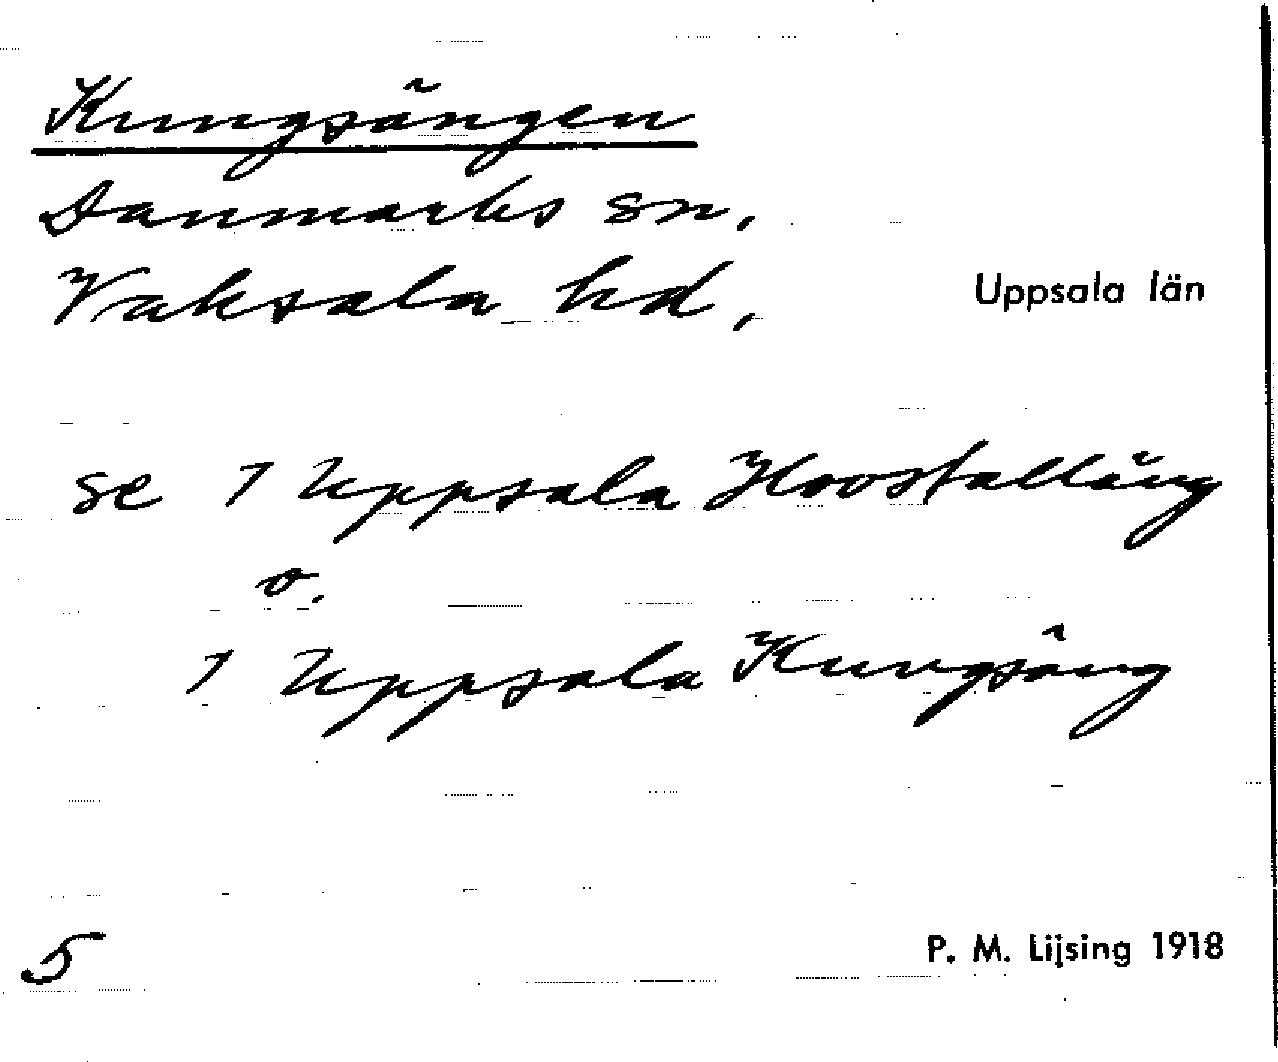 Kungsängen
Danmarks sn,
Vaksala hd, Uppsala län
se 1 Uppsala Hovstalläng
o.
1 Uppsala Kungsäng
5 P. M. Lijsing 1918